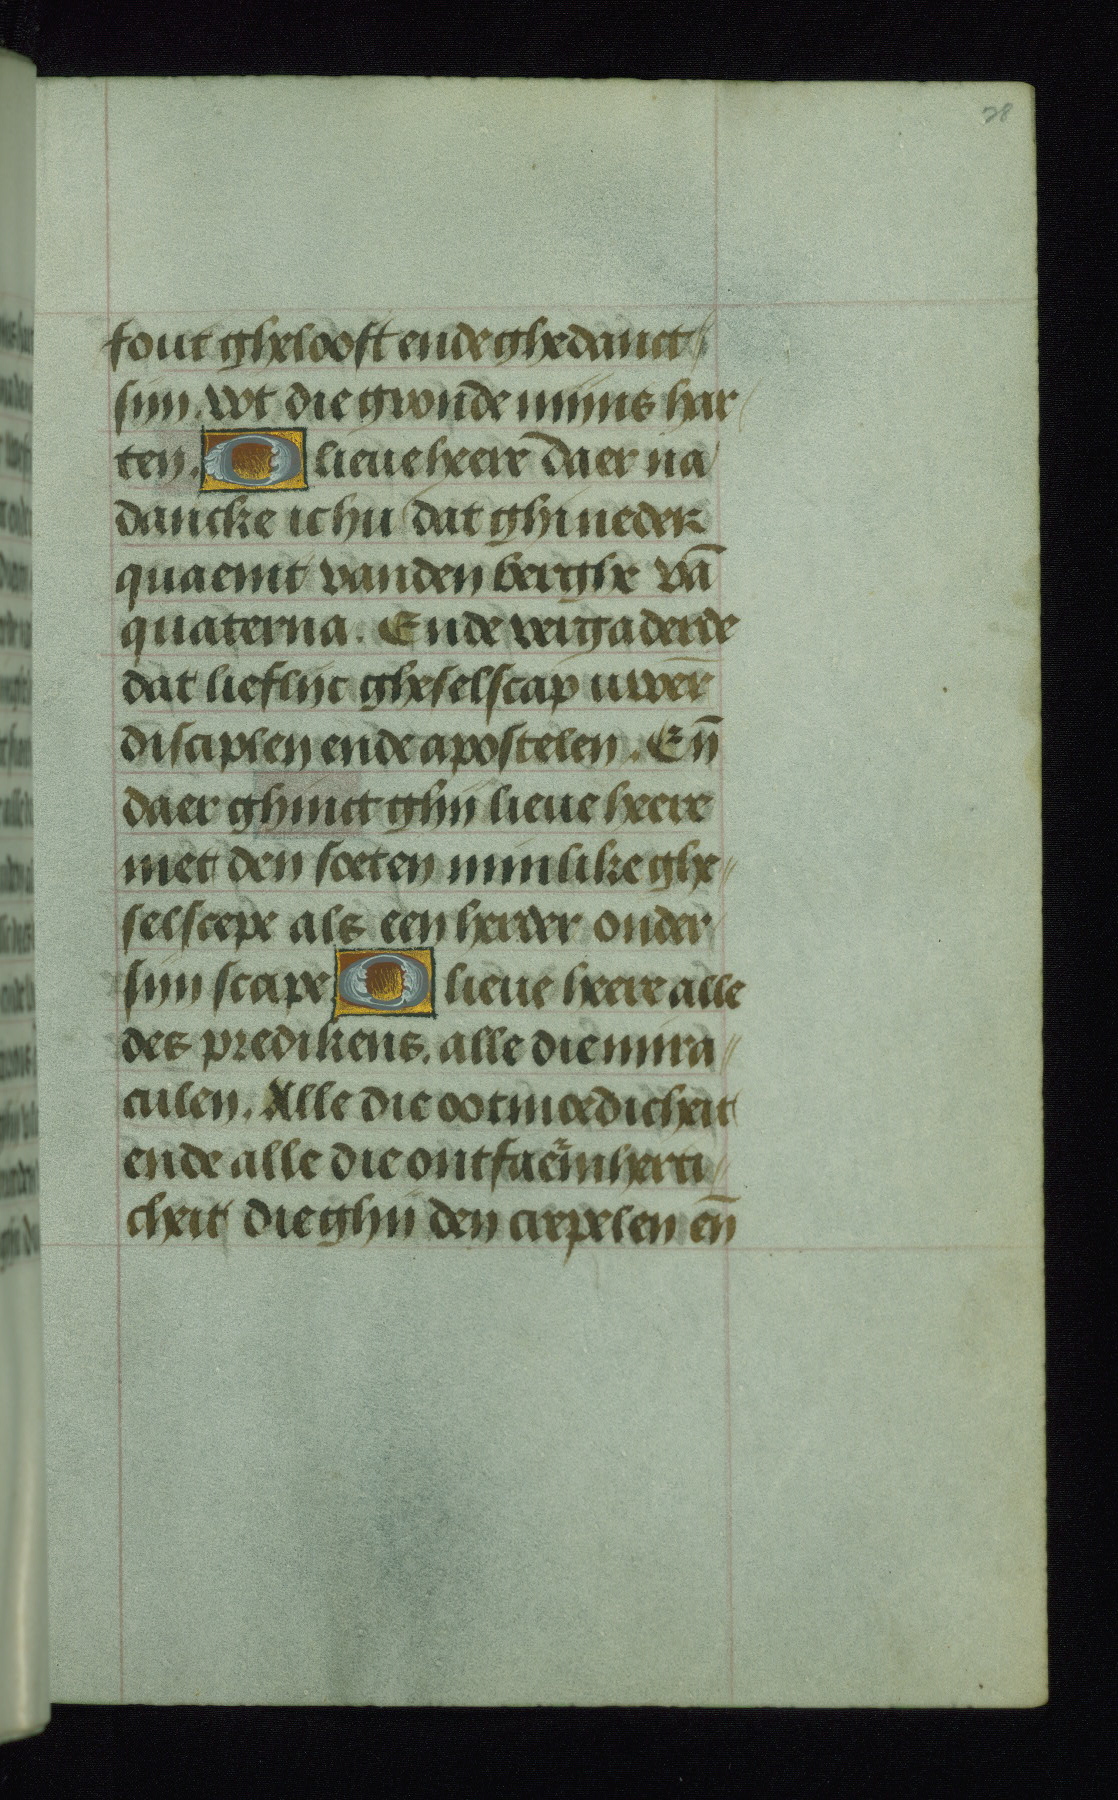 28
fout ghelooft ende ghedanct
sijn. wt die gronde mijns har
ten. O lieue heere daer na
dancke ic hu dat ghi neder
quaemt vanden berghe vā
quaterna. Ende vergaderde
dat lieflijc gheselscap uwer
discipelen ende apostelen. Eñ
daer ghinct ghij lieue heere
met den soeten minlike ghe
selscepe als een herder onder
sijn scape O lieue heere alle
des predikens. alle die mira
culen. Alle die ootmoedicheit
ende alle die ontfaermherti
cheit die ghij den crepelen eñ